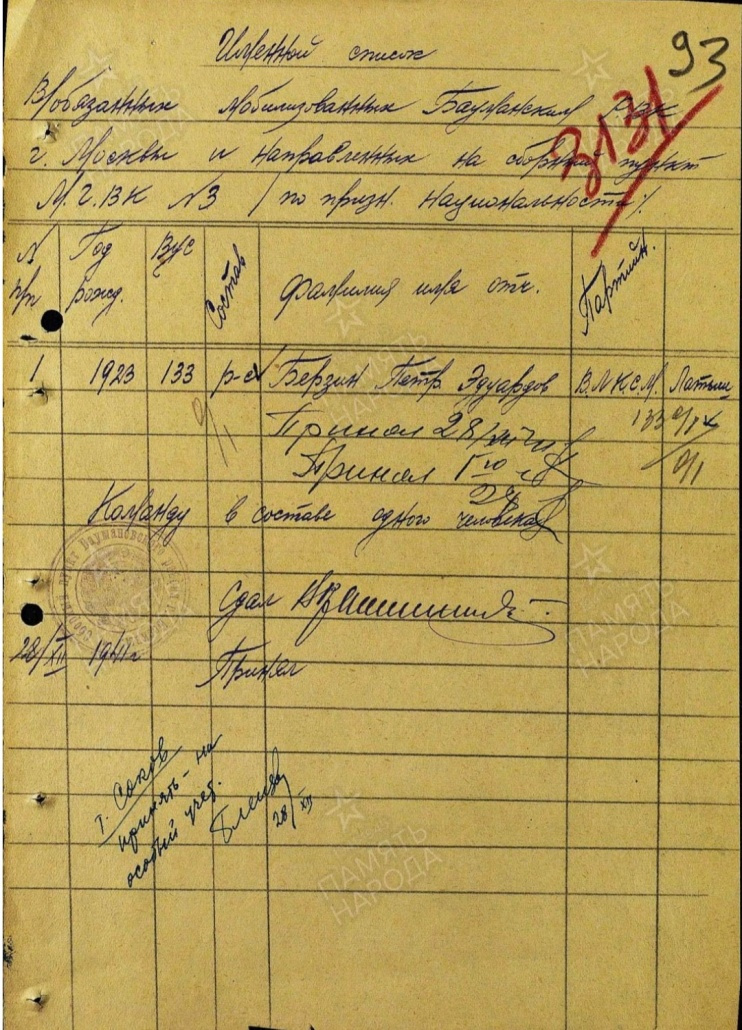 93
Именной список
В/обязанных мобилизованных Бауманским РВК
3131
г. Москвы и направленных на сборный пункт
М.Г.ВК №3 /по призн. национальности/.
N п/п Год рожд. ВУС Состав Фамилия имя отч. Партийн.
1 1923 133 р-с Берзин Петр Эдуардов В.Л.К.С.М. Латыш
Принял 28/XII 133
Принял
Команду в составе одного человека
Сдал
28/XII 1941 г Принял
т. Соков
принять - на
особый учет.
28/XII
ПАМЯТЬ
НАРОДА